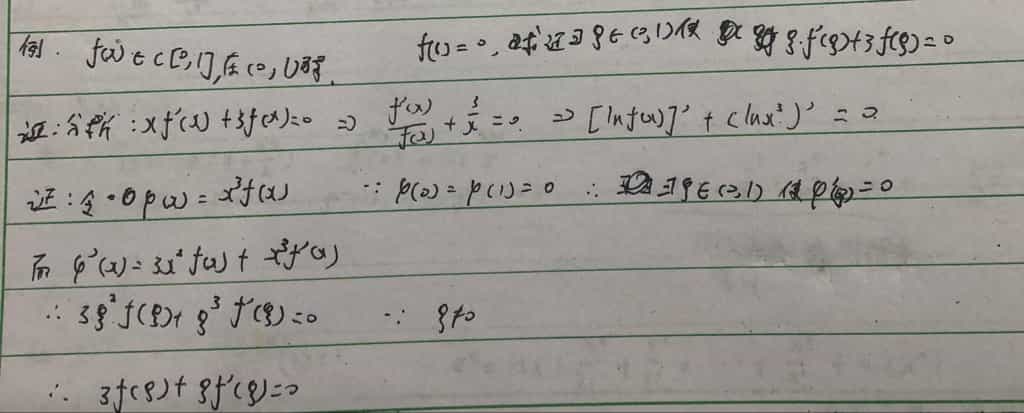 例. f(x)∈C[0,1],在(0,1)可导. f(1)=0, 求证∃ξ∈(0,1)使 ξ·f'(ξ)+3f(ξ)=0
证:分析:xf'(x)+3f(x)=0 ⇒ f'(x)/f(x) + 3/x =0. ⇒ [lnf(x)]' + (lnx³)' = 0
证:令·φ(x)=x³f(x) ∵ φ(0)=φ(1)=0 ∴ ∃ξ∈(0,1) 使φ'(ξ)=0
而 φ'(x)=3x²f(x)+x³f'(x)
∴ 3ξ²f(ξ)+ξ³f'(ξ)=0 ∵ ξ≠0
∴ 3f(ξ)+ξf'(ξ)=0